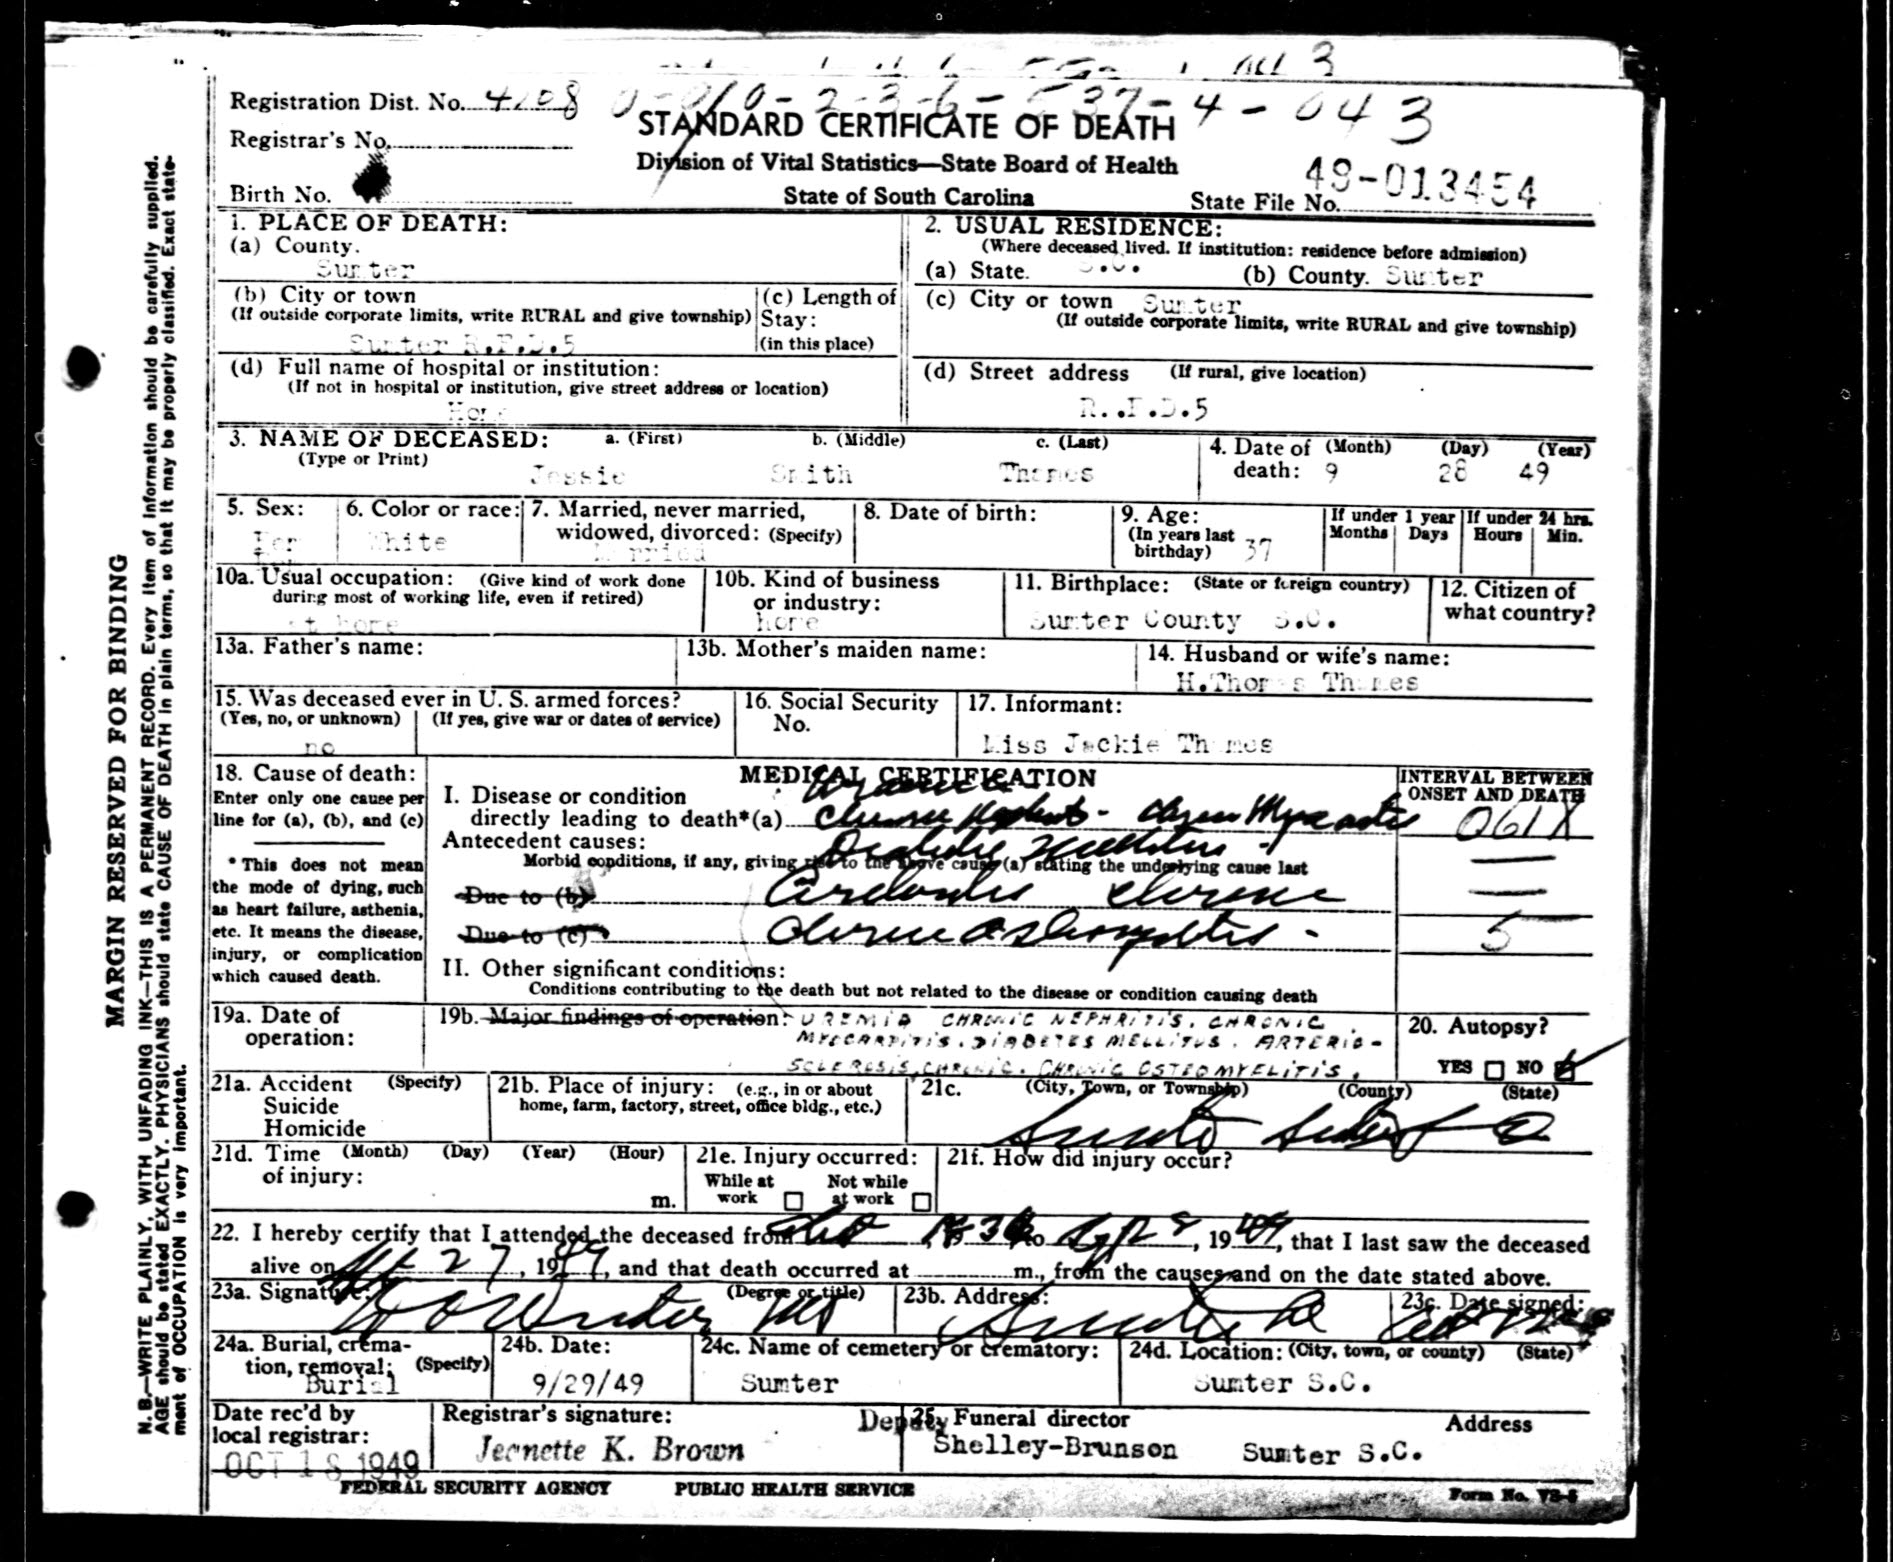 3
Registration Dist. No. 4108 0-010-2-3-6-537-4-043
STANDARD CERTIFICATE OF DEATH
Registrar's No.
Division of Vital Statistics—State Board of Health
49-013454
Birth No.
State of South Carolina
State File No.
1. PLACE OF DEATH:
(a) County.
Sumter
2. USUAL RESIDENCE:
(Where deceased lived. If institution: residence before admission)
(a) State. S.C. (b) County. Sumter
(b) City or town
(If outside corporate limits, write RURAL and give township)
Sumter R.F.D.5
(c) Length of
Stay:
(in this place)
(c) City or town Sumter
(If outside corporate limits, write RURAL and give township)
(d) Full name of hospital or institution:
(If not in hospital or institution, give street address or location)
Home
(d) Street address (If rural, give location)
R.F.D.5
3. NAME OF DECEASED: a. (First) b. (Middle) c. (Last)
(Type or Print)
Jessie Smith Thames
4. Date of (Month) (Day) (Year)
death: 9 28 49
5. Sex:
Fem
6. Color or race:
White
7. Married, never married,
widowed, divorced: (Specify)
Married
8. Date of birth:
9. Age:
(In years last
birthday) 37
If under 1 year
Months Days
If under 24 hrs.
Hours Min.
10a. Usual occupation: (Give kind of work done
during most of working life, even if retired)
at home
10b. Kind of business
or industry:
home
11. Birthplace: (State or foreign country)
Sumter County S.C.
12. Citizen of
what country?
13a. Father's name:
13b. Mother's maiden name:
14. Husband or wife's name:
H.Thomas Thames
15. Was deceased ever in U. S. armed forces?
(Yes, no, or unknown) (If yes, give war or dates of service)
no
16. Social Security
No.
17. Informant:
Miss Jackie Thames
18. Cause of death:
Enter only one cause per
line for (a), (b), and (c)
* This does not mean
the mode of dying, such
as heart failure, asthenia,
etc. It means the disease,
injury, or complication
which caused death.
MEDICAL CERTIFICATION
Uremia
I. Disease or condition
directly leading to death*(a) Chronic Nephritis - Chronic Myocarditis
Antecedent causes: Diabetes Mellitus -
Morbid conditions, if any, giving rise to the above cause (a) stating the underlying cause last
Due to (b)
Due to (c) Chronic Osteomyelitis -
II. Other significant conditions:
Conditions contributing to the death but not related to the disease or condition causing death
INTERVAL BETWEEN
ONSET AND DEATH
061X
5
19a. Date of
operation:
19b. Major findings of operation: UREMIA CHRONIC NEPHRITIS. CHRONIC
MYOCARDITIS. DIABETES MELLITUS. ARTERIO-
SCLEROSIS, CHRONIC. CHRONIC OSTEOMYELITIS.
20. Autopsy?
YES NO
21a. Accident (Specify)
Suicide
Homicide
21b. Place of injury: (e.g., in or about
home, farm, factory, street, office bldg., etc.)
21c. (City, Town, or Township) (County) (State)
Sumter
21d. Time (Month) (Day) (Year) (Hour)
of injury:
m.
21e. Injury occurred:
While at Not while
work at work
21f. How did injury occur?
22. I hereby certify that I attended the deceased from 1936 to Sept 8, 1949, that I last saw the deceased
alive on 27, 1949, and that death occurred at m., from the causes and on the date stated above.
23a. Signature: (Degree or title)
MD
23b. Address:
Sumter SC
23c. Date signed:
24a. Burial, crema-
tion, removal; (Specify)
Burial
24b. Date:
9/29/49
24c. Name of cemetery or crematory:
Sumter
24d. Location: (City, town, or county) (State)
Sumter S.C.
Date rec'd by
local registrar:
OCT 18 1949
Registrar's signature: Deputy
Jeanette K. Brown
25. Funeral director Address
Shelley-Brunson Sumter S.C.
FEDERAL SECURITY AGENCY PUBLIC HEALTH SERVICE Form No. VS-5
MARGIN RESERVED FOR BINDING
N. B.—WRITE PLAINLY, WITH UNFADING INK—THIS IS A PERMANENT RECORD. Every item of information should be carefully supplied.
AGE should be stated EXACTLY. PHYSICIANS should state CAUSE OF DEATH in plain terms, so that it may be properly classified. Exact state-
ment of OCCUPATION is very important.